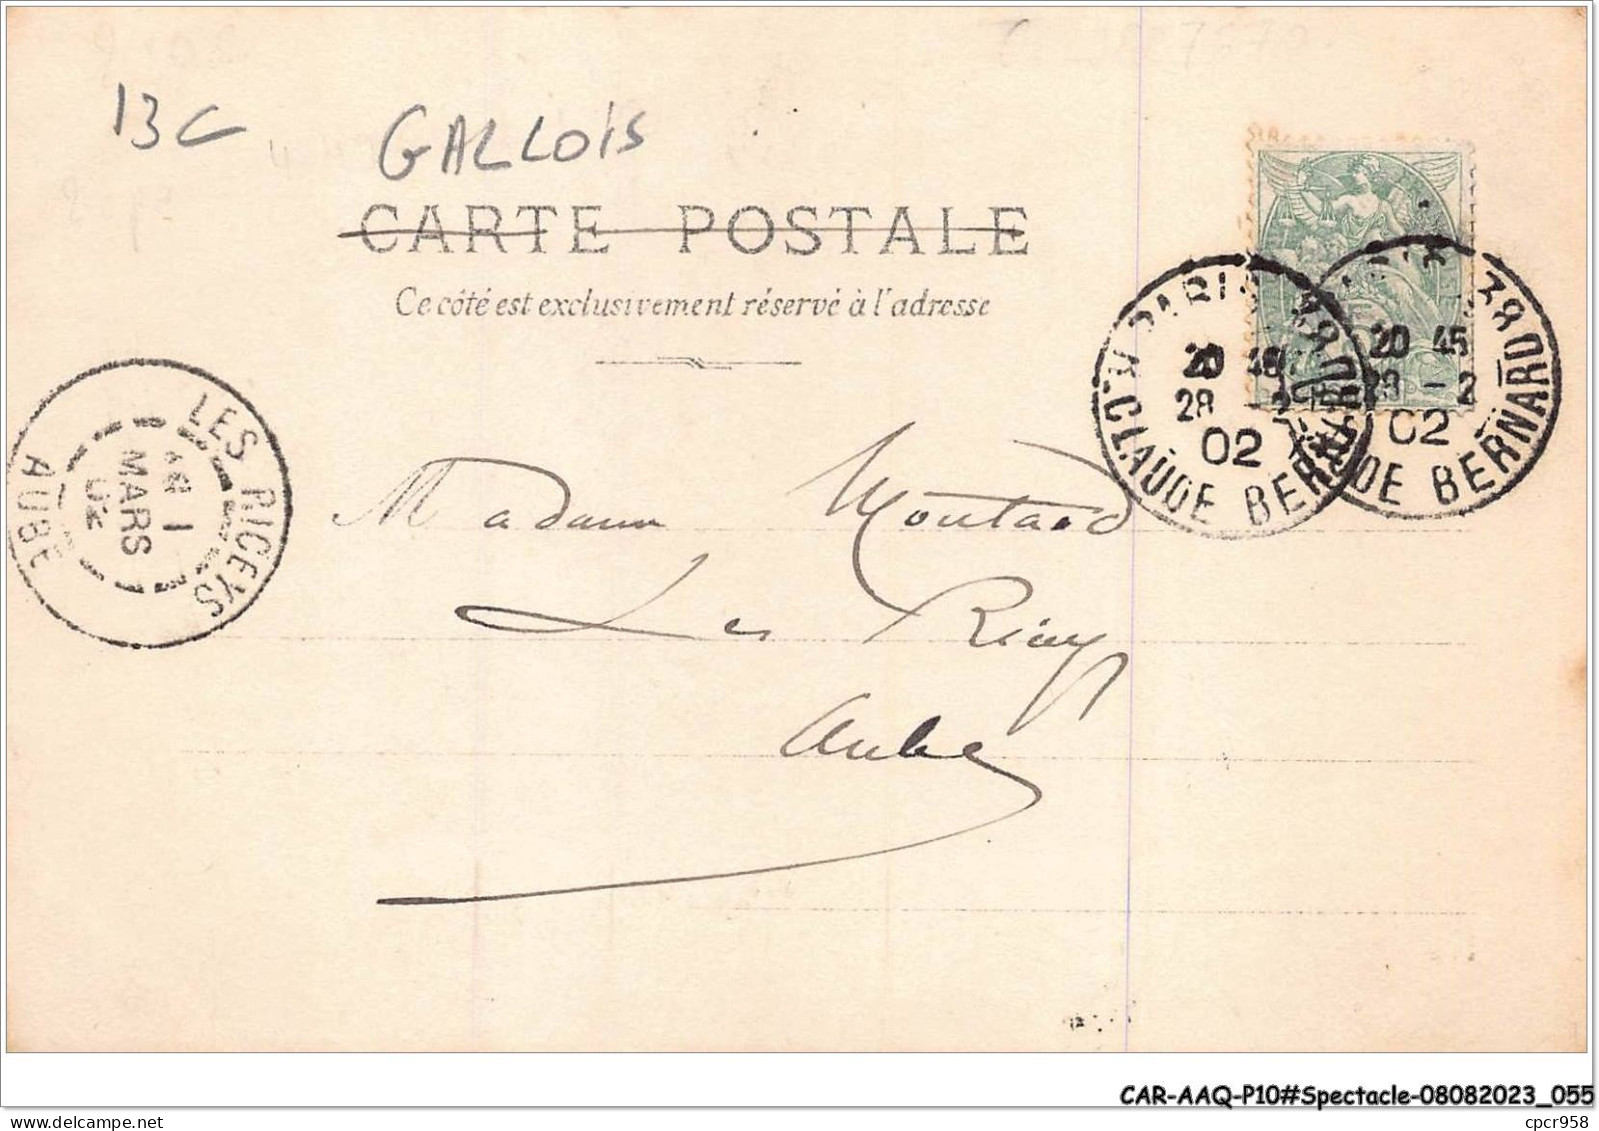 13 C
GALLOIS
CARTE POSTALE
Ce côté est exclusivement réservé à l'adresse
PARIS
20 45
28 - 2
02
R. CLAUDE BERNARD
20 45
28 - 2
02
DE BERNARD
LES RICEYS
1
MARS
02
AUBE
Madame Moutard
Les Riceys
Aube
CAR-AAQ-P10#Spectacle-08082023_055
cpcr958